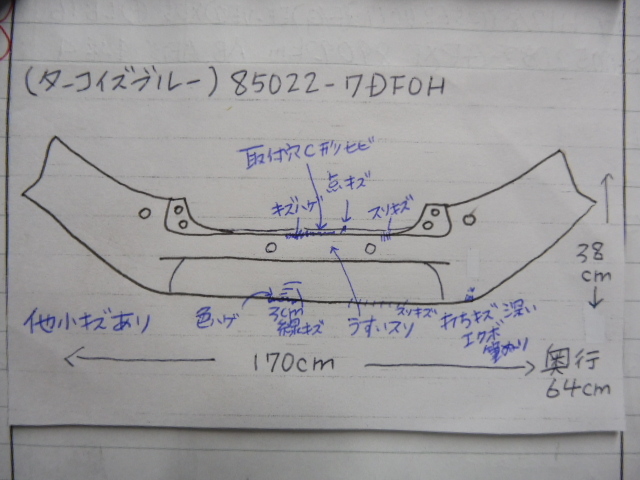 (ターコイズブルー) 85022-7DF0H
取付穴C形ヒビ
点キズ
キズハゲ
スリキズ
38
cm
他小キズあり
色ハゲ
3cm
線キズ
うすいスリ
スリキズ
打ちキズ 深い
エクボ
170cm
奥行
64cm